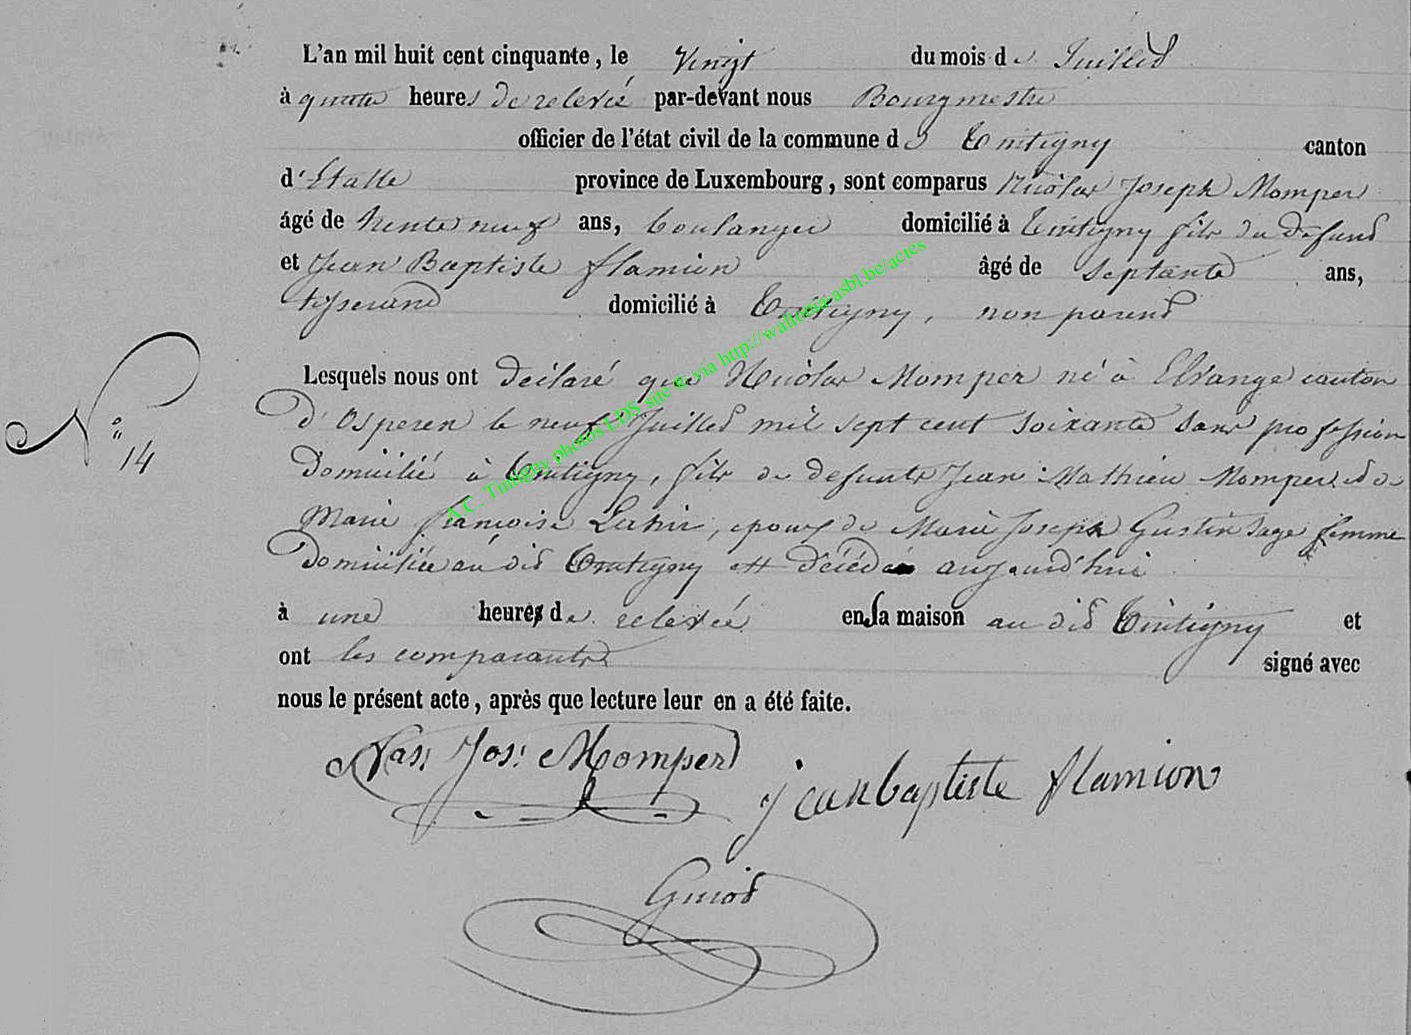 L'an mil huit cent cinquante, le Vingt du mois de Juillet
à quatre heures de relevée par-devant nous Bourgmestre
officier de l'état civil de la commune de Tintigny canton
d'Etalle province de Luxembourg, sont comparus Nicolas Joseph Momper
âgé de trente neuf ans, boulanger domicilié à Tintigny fils du défunt
et Jean Baptiste flamion âgé de septante ans,
tisserand domicilié à Tintigny, non parent
Lesquels nous ont déclaré que Nicolas Momper né à Elvange canton
d'Osperen le neuf Juillet mil sept cent soixante sans profession
domicilié à Tintigny, fils de defunts Jean Mathieu Momper et de
Marie françoise, epoux de Marie Joseph Gustin sage femme
domiciliée au dit Tintigny est décédé aujourd'hui
à une heure de relevée en sa maison au dit Tintigny et
ont les comparants signé avec
nous le présent acte, après que lecture leur en a été faite.
N° 14
Nas Jos: Momper
jean baptiste flamion
Guiot
A.C. Tintigny photos LDS site & via http://wallonia-asbl.be/actes